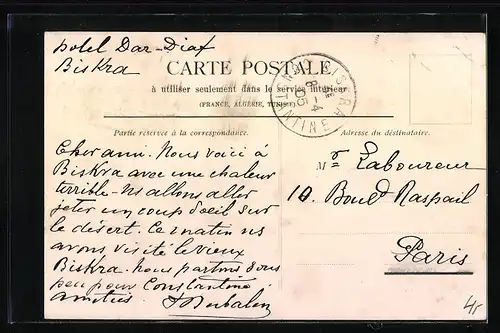 Hotel Dar-Diaf
Biskra
CARTE POSTALE
à utiliser seulement dans le service intérieur
(FRANCE, ALGÉRIE, TUNISIE)
BISKRA
8 -4 05
CONSTANTINE
Partie réservée à la correspondance.
Adresse du destinataire.
Cher ami. Nous voici à
Biskra avec une chaleur
terrible - ns allons aller
jeter un coup d'oeil sur
le désert. Ce matin ns
avons visité le vieux
Biskra. nous partons sous
peu pour Constantine
amitiés
Mr Laboureur
10. Boul d Raspail
Paris